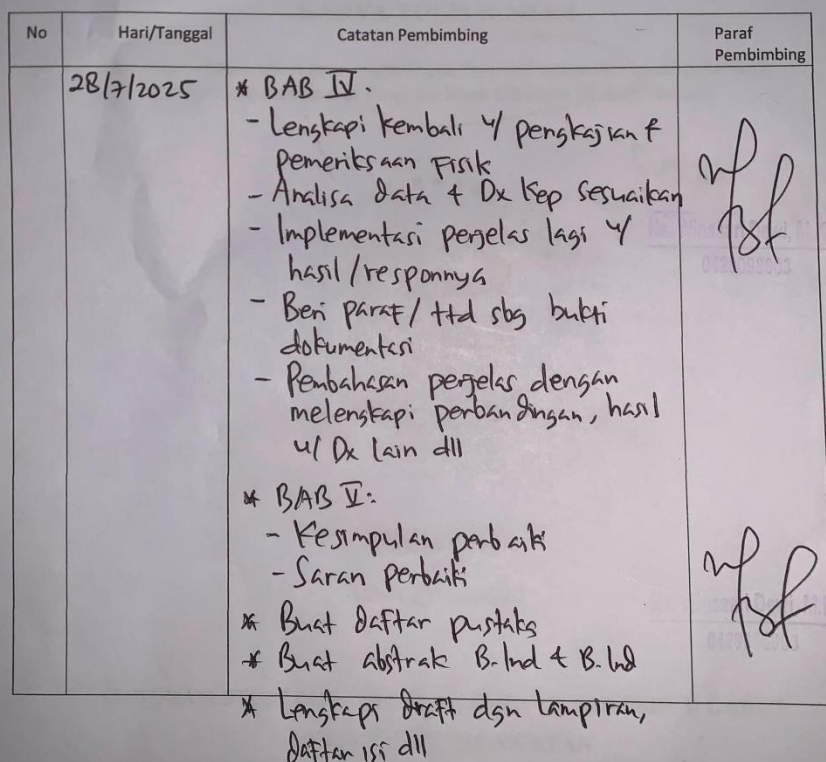 No Hari/Tanggal Catatan Pembimbing Paraf
Pembimbing
28/7/2025 * BAB IV.
- Lengkapi kembali u/ pengkajian &
pemeriksaan Fisik
- Analisa data & Dx Kep sesuaikan
- Implementasi perjelas lagi u/
hasil/responnya
- Beri paraf/ttd sbg bukti
dokumentasi
- Pembahasan perjelas dengan
melengkapi perbandingan, hasil
u/ Dx lain dll
* BAB V:
- Kesimpulan perbaiki
- Saran perbaiki
* Buat daftar pustaka
* Buat abstrak B.Ind & B.Ind
* Lengkapi draft dgn lampiran,
daftar isi dll